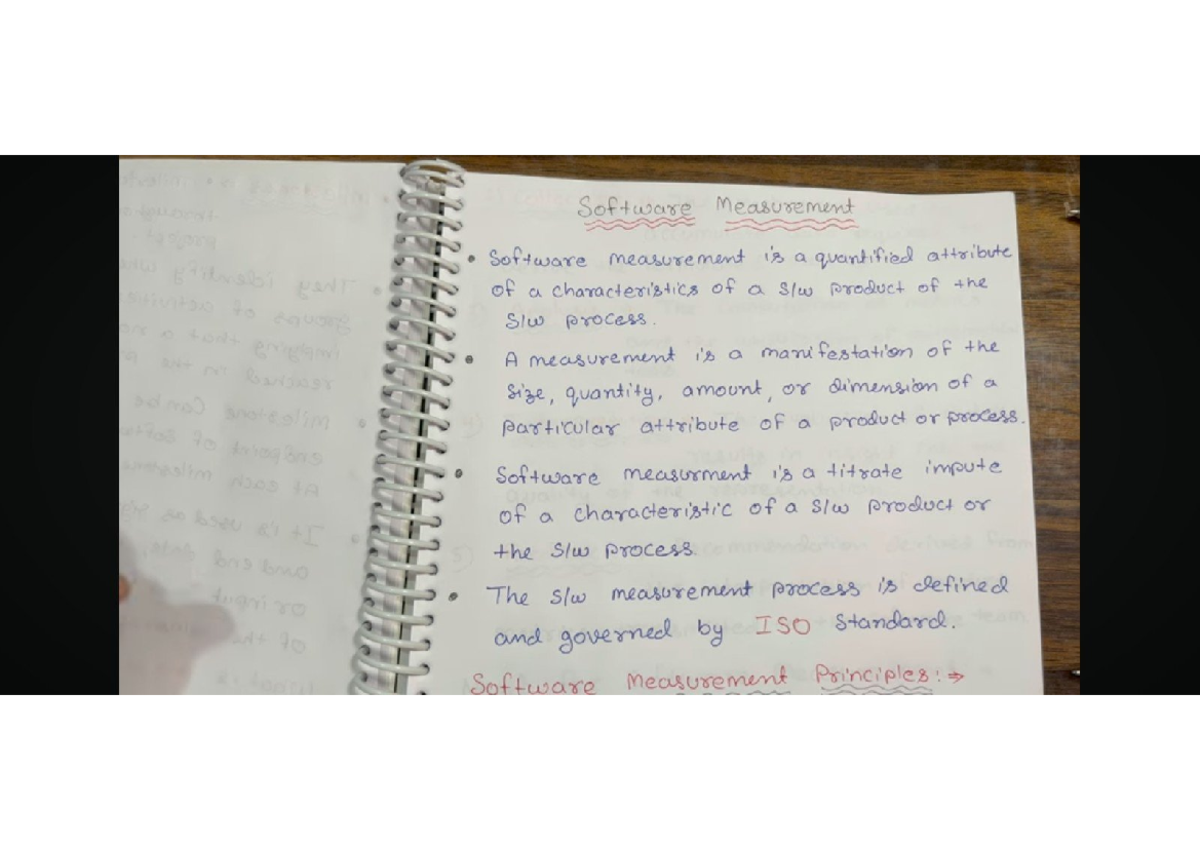 Software Measurement
• Software measurement is a quantified attribute
of a characteristics of a S/w product of the
S/w process.
• A measurement is a manifestation of the
size, quantity, amount, or dimension of a
particular attribute of a product or process.
• Software measurment is a titrate impute
of a characteristic of a S/w product or
the S/w process.
• The S/w measurement process is defined
and governed by ISO Standard.
Software Measurement Principles:→